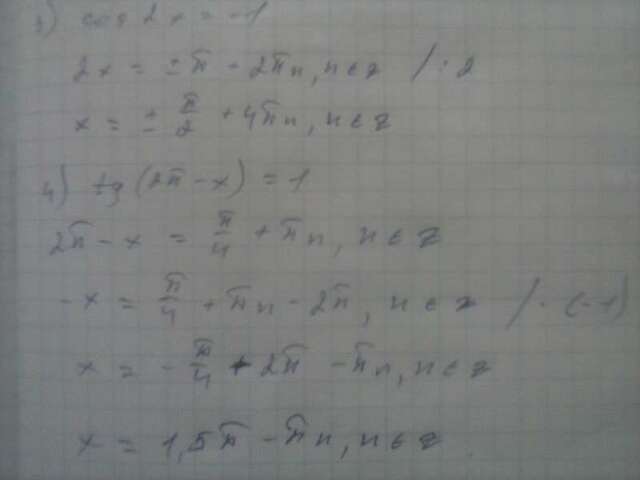 3) cos 2x = -1
2x = ± π - 2πn, n ∈ z / : 2
x = ± π/2 + 4πn, n ∈ z
4) tg (2π - x) = 1
2π - x = π/4 + πn, n ∈ z
-x = π/4 + πn - 2π, n ∈ z / · (-1)
x = - π/4 + 2π - πn, n ∈ z
x = 1,5π - πn, n ∈ z